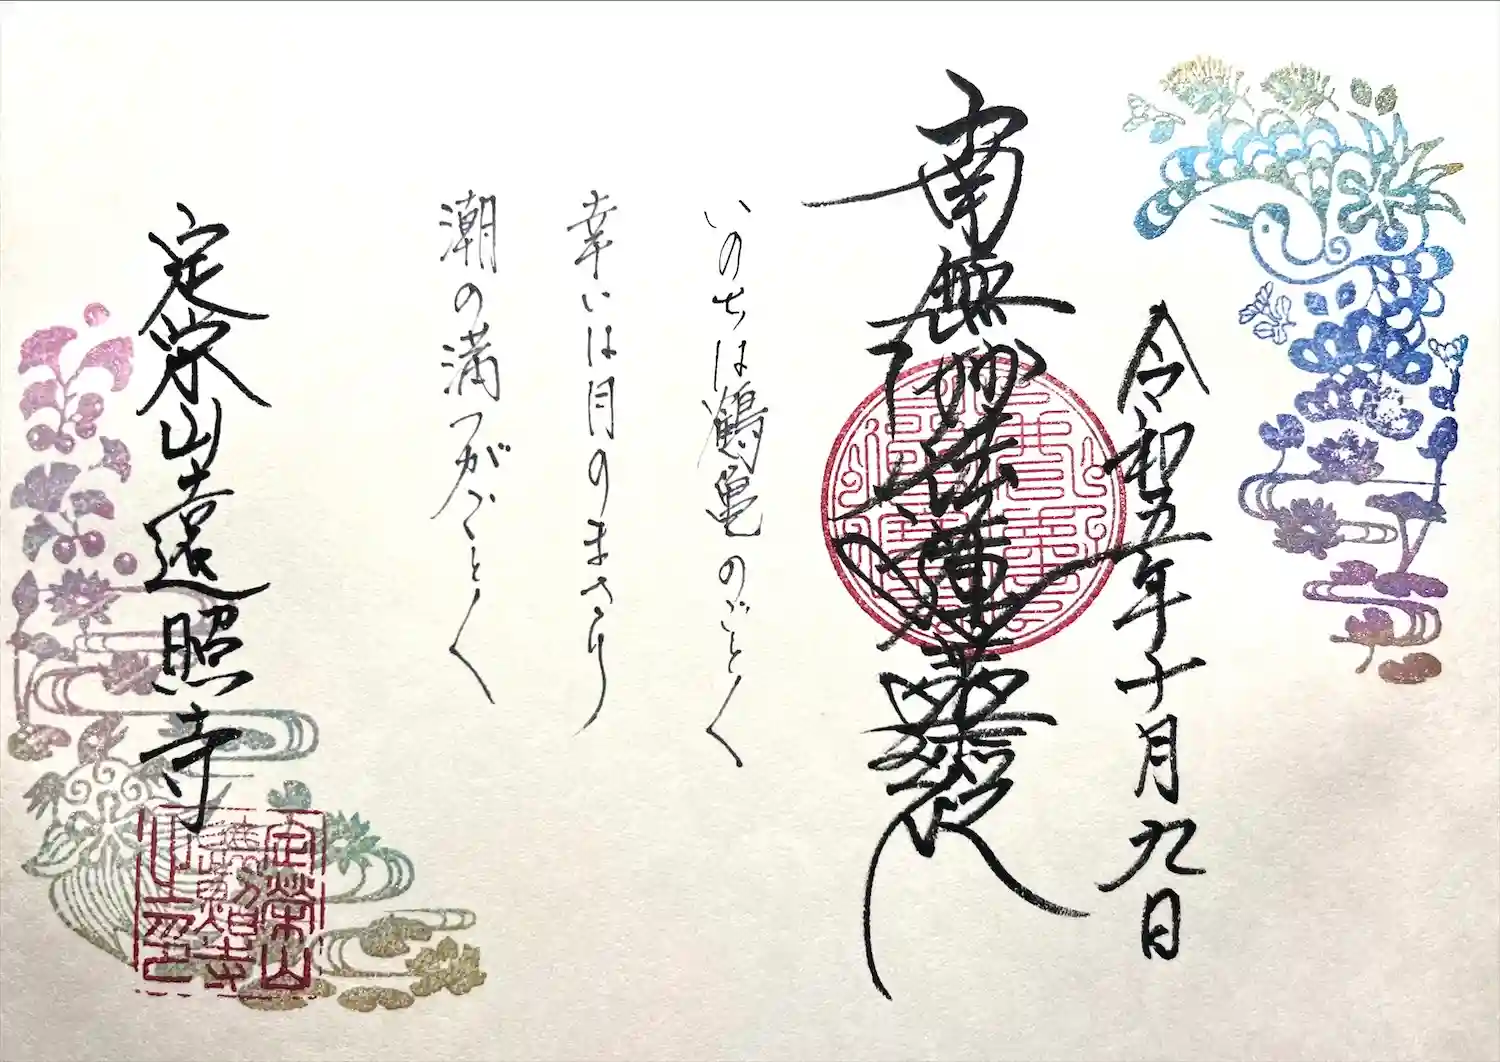 令和五年十月九日
南無妙法蓮華経
いのちは鶴亀のごとく
幸いは月のまさり
潮の満つがごとく
定栄山遠照寺